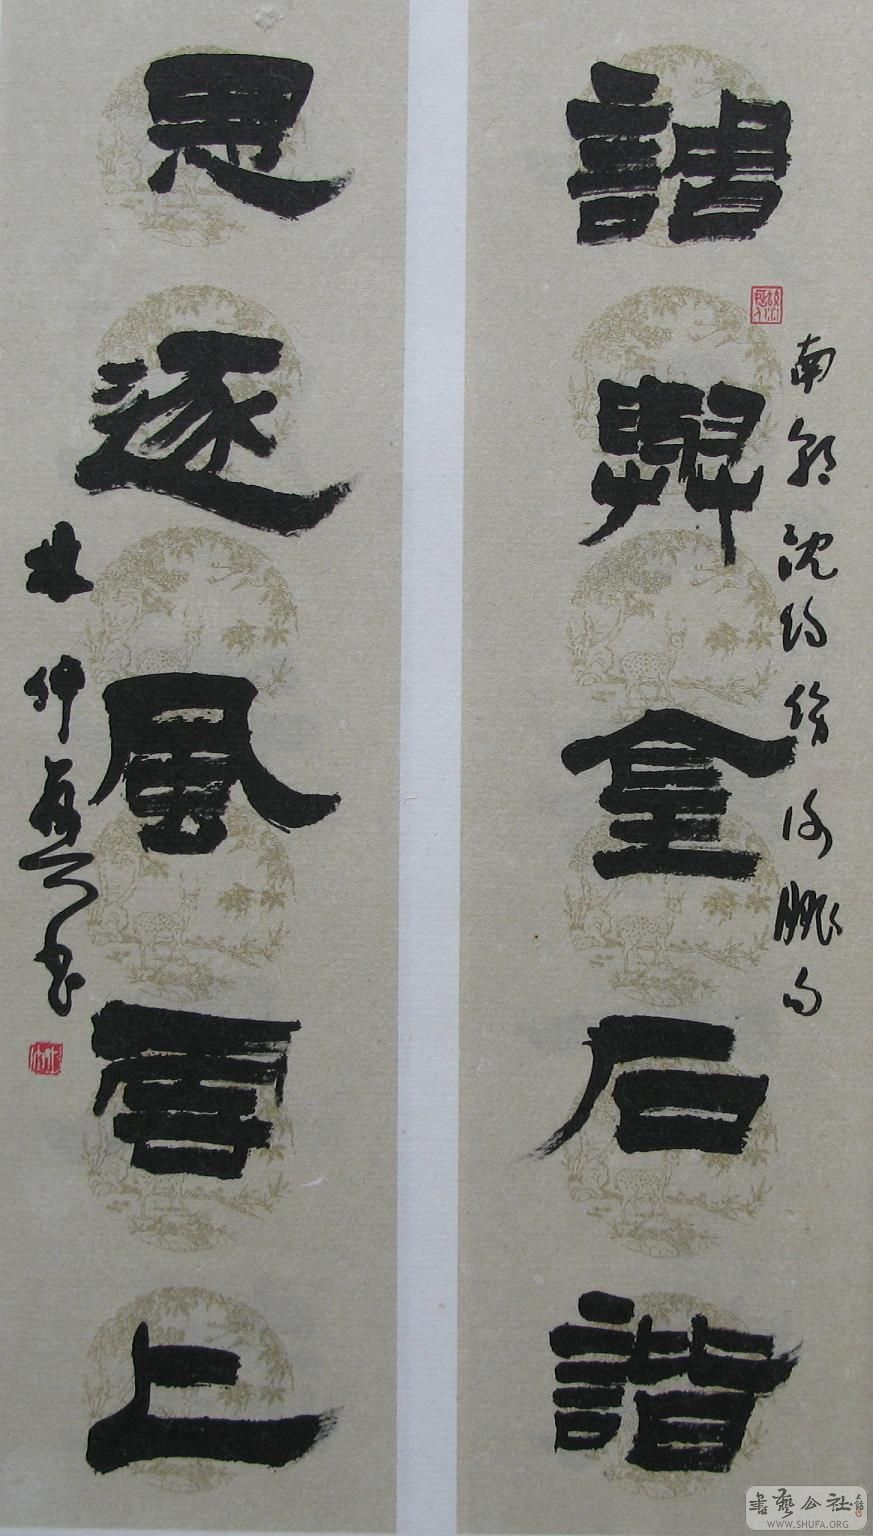 調與金石諧
南朝沈約傷謝朓句
思逐風雲上
林仲興书
書藝公社
WWW.SHUFA.ORG